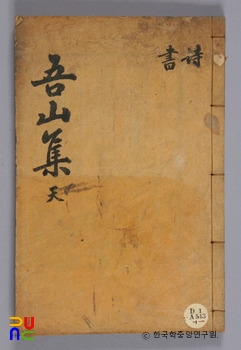 吾山集 天
詩
書
D 1
A 553
ⓒ 한국학중앙연구원